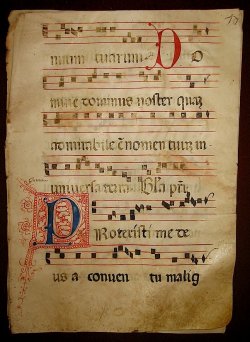 nuum tuarum D O
mine dominus noster quaz
admirabile e nomen tuuz in
universa terra ps
Protexisti me de
us a conven tu malig